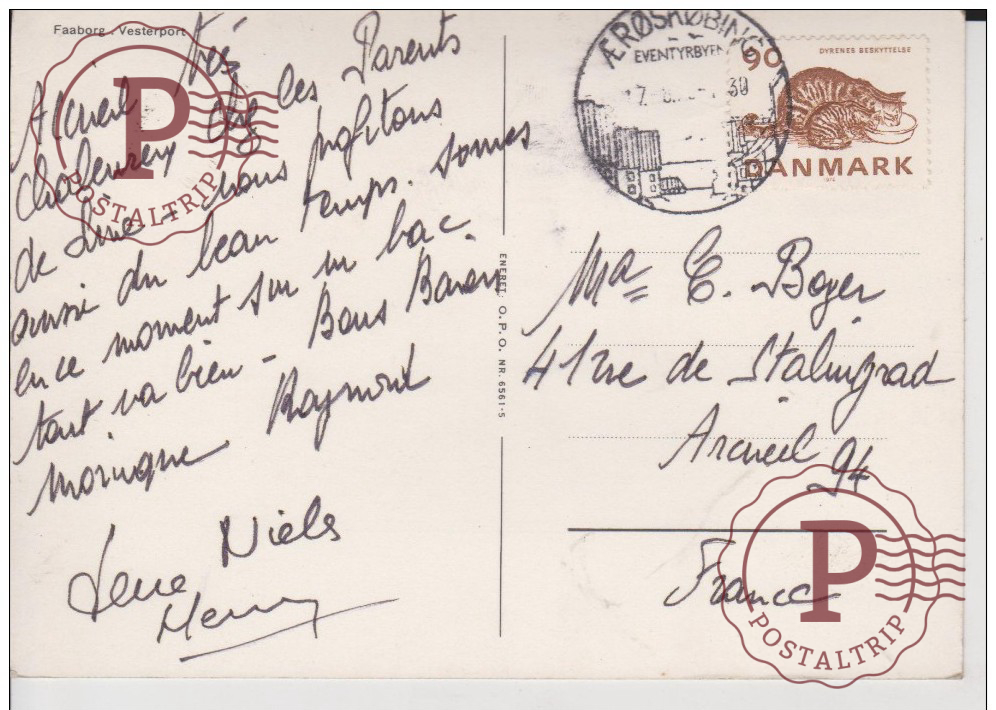 Faaborg . Vesterport
Acueil très
Chaleureux chez les Parents
de Lene - nous profitons
aussi du beau temps. sommes
en ce moment sur un bac.
tout va bien - Bons Baisers
Monique Raymond
Lene Niels
Henry
ENERET: O.P.O. NR. 6561-5
ÆRØSKØBING
EVENTYRBYEN
90
DYRENES BESKYTTELSE
DANMARK
E. Boyer
41 rue de Stalingrad
Arcueil 94
France
P
POSTALTRIP
P
POSTALTRIP